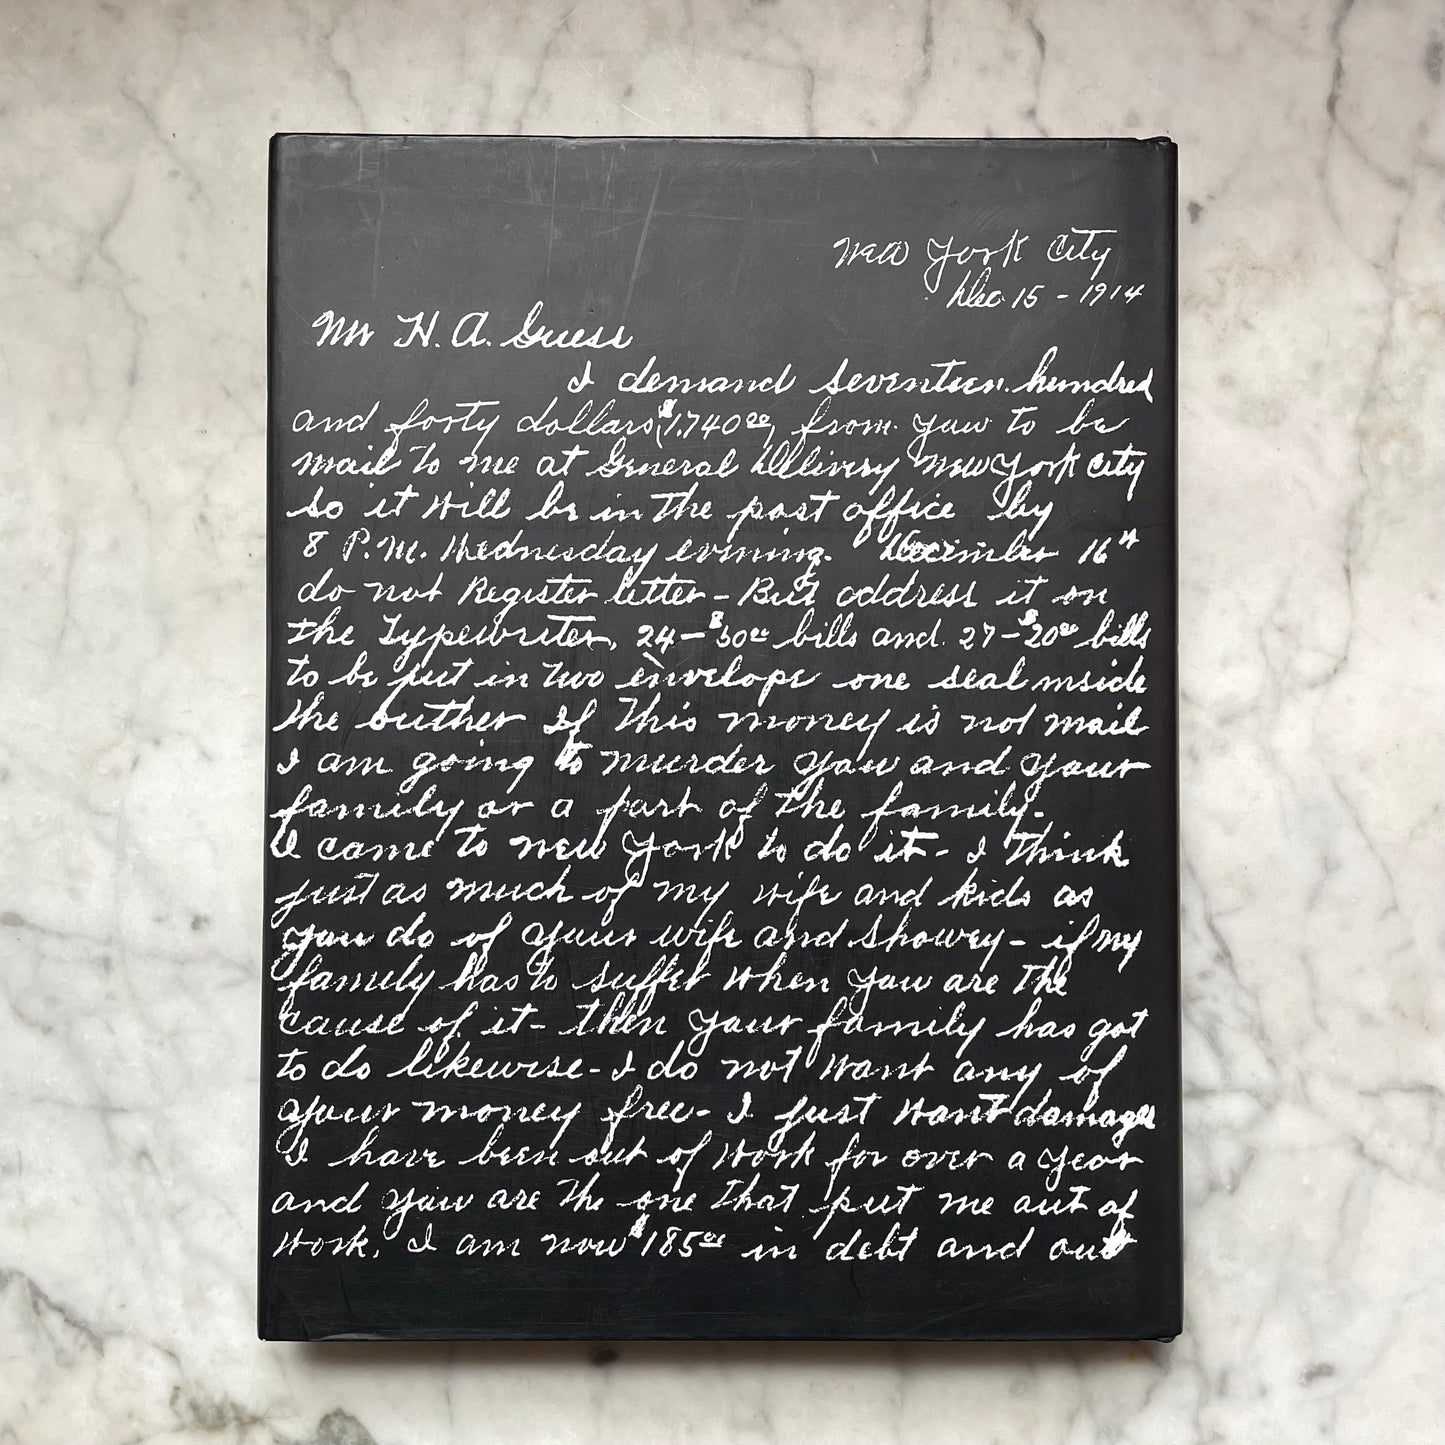 New York City
Dec 15 - 1914
Mr H. A. Guess
I demand seventeen hundred
and forty dollars ($1,740 00) from yaw to be
mail to me at General Delivery New York City
so it will be in the post office by
8 P.M. Wednesday evening. December 16th
do not Register letter - But address it on
the Typewriter, 24 - $50 00 bills and 27 - $20 00 bills
to be put in two envelope one seal inside
the outher If this money is not mail
I am going to murder yaw and your
family or a part of the family.
I came to New York to do it - I think
just as much of my wife and kids as
you do of your wife and Showey - if my
family has to suffer when yaw are the
cause of it - then your family has got
to do likewise - I do not want any of
your money free - I just want damage
I have been out of work for over a year
and yaw are the one that put me out of
work. I am now $185 00 in debt and out